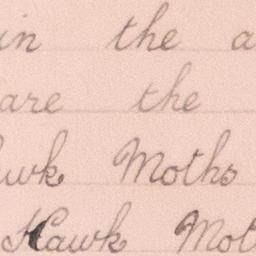 in the a
are the
awk Moths
Hawk Mot